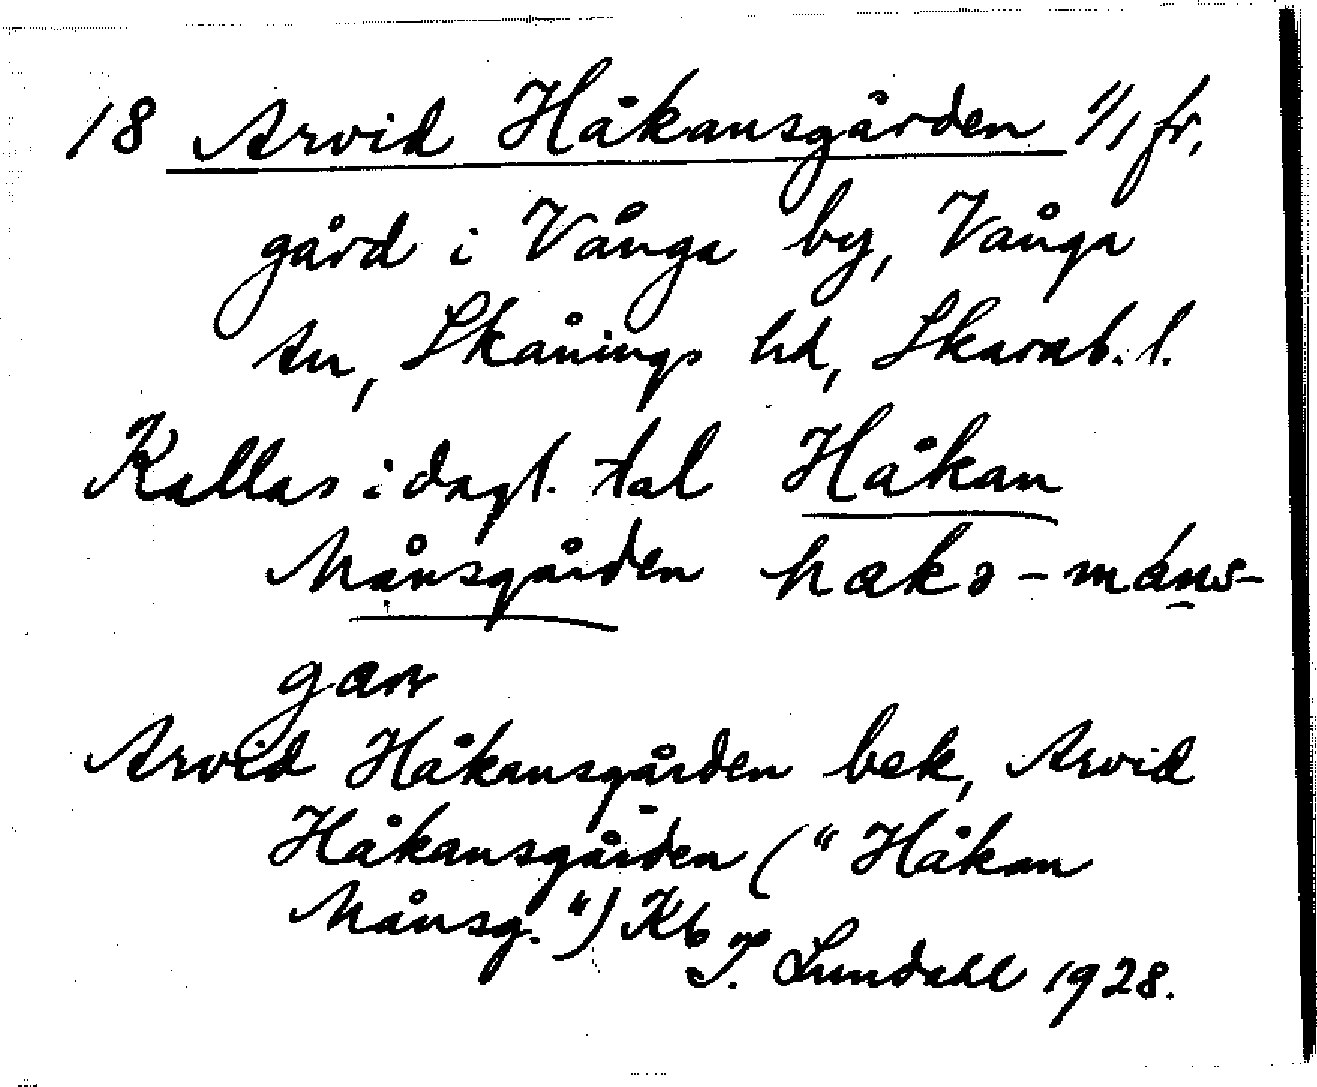 18 Arvid Håkansgården 1/1 fr.
gård i Vånga by, Vånga
sn, Skånings hd, Skarab. l.
Kallas i dagl. tal Håkan
Månsgården hakɔ-måns-
gar
Arvid Håkansgården bek, Arvid
Håkansgården ("Håkan
Månsg.") Kb
I. Lundahl 1928.